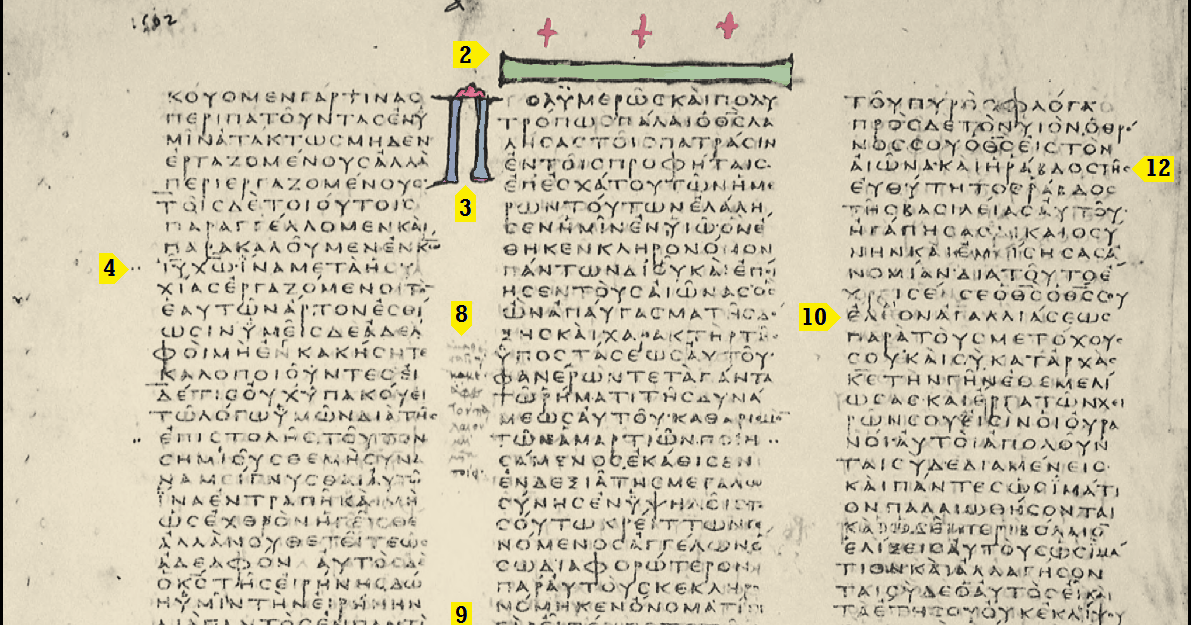 2
ΚΟΥΟΜΕΝΓΑΡΤΙΝΑϹ
ΠΕΡΙΠΑΤΟΥΝΤΑϹΕΝΥ
ΜΙΝΑΤΑΚΤΩϹΜΗΔΕΝ
ΕΡΓΑΖΟΜΕΝΟΥϹΑΛΛΑ
ΠΕΡΙΕΡΓΑΖΟΜΕΝΟΥϹ
ΤΟΙϹΔΕΤΟΙΟΥΤΟΙϹ
ΠΑΡΑΓΓΕΛΛΟΜΕΝΚΑΙ
ΠΑΡΑΚΑΛΟΥΜΕΝΕΝΚΩ
4
ΙΥΧΩΙΝΑΜΕΤΑΗϹΥ
ΧΙΑϹΕΡΓΑΖΟΜΕΝΟΙΤΟ
ΕΑΥΤΩΝΑΡΤΟΝΕϹΘΙ
ΩϹΙΝΥΜΕΙϹΔΕΑΔΕΛ
ΦΟΙΜΗΕΝΚΑΚΗϹΗΤΕ
ΚΑΛΟΠΟΙΟΥΝΤΕϹΕΙ
ΔΕΤΙϹΟΥΧΥΠΑΚΟΥΕΙ
ΤΩΛΟΓΩΥΜΩΝΔΙΑΤΗϹ
ΕΠΙϹΤΟΛΗϹΤΟΥΤΟΝ
ϹΗΜΙΟΥϹΘΕΜΗϹΥΝΑ
ΝΑΜΕΙΓΝΥϹΘΑΙΑΥΤΩ
ΙΝΑΕΝΤΡΑΠΗΚΑΙΜΗ
ΩϹΕΧΘΡΟΝΗΓΕΙϹΘΕ
ΑΛΛΑΝΟΥΘΕΤΕΙΤΕΩϹ
ΑΔΕΛΦΟΝ ΑΥΤΟϹΔΕ
ΟΚϹΤΗϹΕΙΡΗΝΗϹΔΩ
ΗΥΜΙΝΤΗΝΕΙΡΗΝΗΝ
3
8
9
Π
ΟΛΥΜΕΡΩϹΚΑΙΠΟΛΥ
ΤΡΟΠΩϹΠΑΛΑΙΟΘϹΛΑ
ΛΗϹΑϹΤΟΙϹΠΑΤΡΑϹΙΝ
ΕΝΤΟΙϹΠΡΟΦΗΤΑΙϹ
ΕΠΕϹΧΑΤΟΥΤΩΝΗΜΕ
ΡΩΝΤΟΥΤΩΝΕΛΑΛΗ
ϹΕΝΗΜΙΝΕΝΥΙΩΟΝΕ
ΘΗΚΕΝΚΛΗΡΟΝΟΜΟΝ
ΠΑΝΤΩΝΔΙΟΥΚΑΙΕΠΟΙ
ΗϹΕΝΤΟΥϹΑΙΩΝΑϹΟϹ
ΩΝΑΠΑΥΓΑϹΜΑΤΗϹΔΟ
ΞΗϹΚΑΙΧΑΡΑΚΤΗΡΤΗϹ
ΥΠΟϹΤΑϹΕΩϹΑΥΤΟΥ
ΦΑΝΕΡΩΝΤΕΤΑΠΑΝΤΑ
ΤΩΡΗΜΑΤΙΤΗϹΔΥΝΑ
ΜΕΩϹΑΥΤΟΥ·ΚΑΘΑΡΙϹΜΟ
ΤΩΝΑΜΑΡΤΙΩΝΠΟΙΗ
ϹΑΜΕΝΟϹΕΚΑΘΙϹΕΝ
ΕΝΔΕΞΙΑΤΗϹΜΕΓΑΛΩ
ϹΥΝΗϹΕΝΥΨΗΛΟΙϹΤΟ
ϹΟΥΤΩΚΡΕΙΤΤΩΝΓΕ
ΝΟΜΕΝΟϹΑΓΓΕΛΩΝΟ
ϹΩΔΙΑΦΟΡΩΤΕΡΟΝ
ΠΑΡΑΥΤΟΥϹΚΕΚΛΗΡΟ
ΝΟΜΗΚΕΝΟΝΟΜΑΤΙΝΙ
10
12
ΤΟΥΠΥΡΟϹΦΛΟΓΑ
ΠΡΟϹΔΕΤΟΝΥΙΟΝΟΘΡΟ
ΝΟϹϹΟΥΟΘϹΕΙϹΤΟΝ
ΑΙΩΝΑΚΑΙΗΡΑΒΔΟϹΤΗϹ
ΕΥΘΥΤΗΤΟϹΡΑΒΔΟϹ
ΤΗϹΒΑϹΙΛΕΙΑϹΑΥΤΟΥ
ΗΓΑΠΗϹΑϹΔΙΚΑΙΟϹΥ
ΝΗΝΚΑΙΕΜΙϹΗϹΑϹΑ
ΝΟΜΙΑΝΔΙΑΤΟΥΤΟΕ
ΧΡΙϹΕΝϹΕΟΘϹΟΘϹϹΟΥ
ΕΛΑΙΟΝΑΓΑΛΛΙΑϹΕΩϹ
ΠΑΡΑΤΟΥϹΜΕΤΟΧΟΥϹ
ϹΟΥΚΑΙϹΥΚΑΤΑΡΧΑϹ
ΚΕΤΗΝΓΗΝΕΘΕΜΕΛΙ
ΩϹΑϹΚΑΙΕΡΓΑΤΩΝΧΕΙ
ΡΩΝϹΟΥΕΙϹΙΝΟΙΟΥΡΑ
ΝΟΙΑΥΤΟΙΑΠΟΛΟΥΝ
ΤΑΙϹΥΔΕΔΙΑΜΕΝΕΙϹ
ΚΑΙΠΑΝΤΕϹΩϹΙΜΑΤΙ
ΟΝΠΑΛΑΙΩΘΗϹΟΝΤΑΙ
ΚΑΙΩϹΕΙΠΕΡΙΒΟΛΑΙΟ
ΕΛΙΞΕΙϹΑΥΤΟΥϹΩϹΙΜΑ
ΤΙΟΝΚΑΙΑΛΛΑΓΗϹΟΝ
ΤΑΙϹΥΔΕΟΑΥΤΟϹΕΙΚΑΙ
ΤΑΕΤΗϹΟΥΟΥΚΕΚΛΕΙΨΟΥ